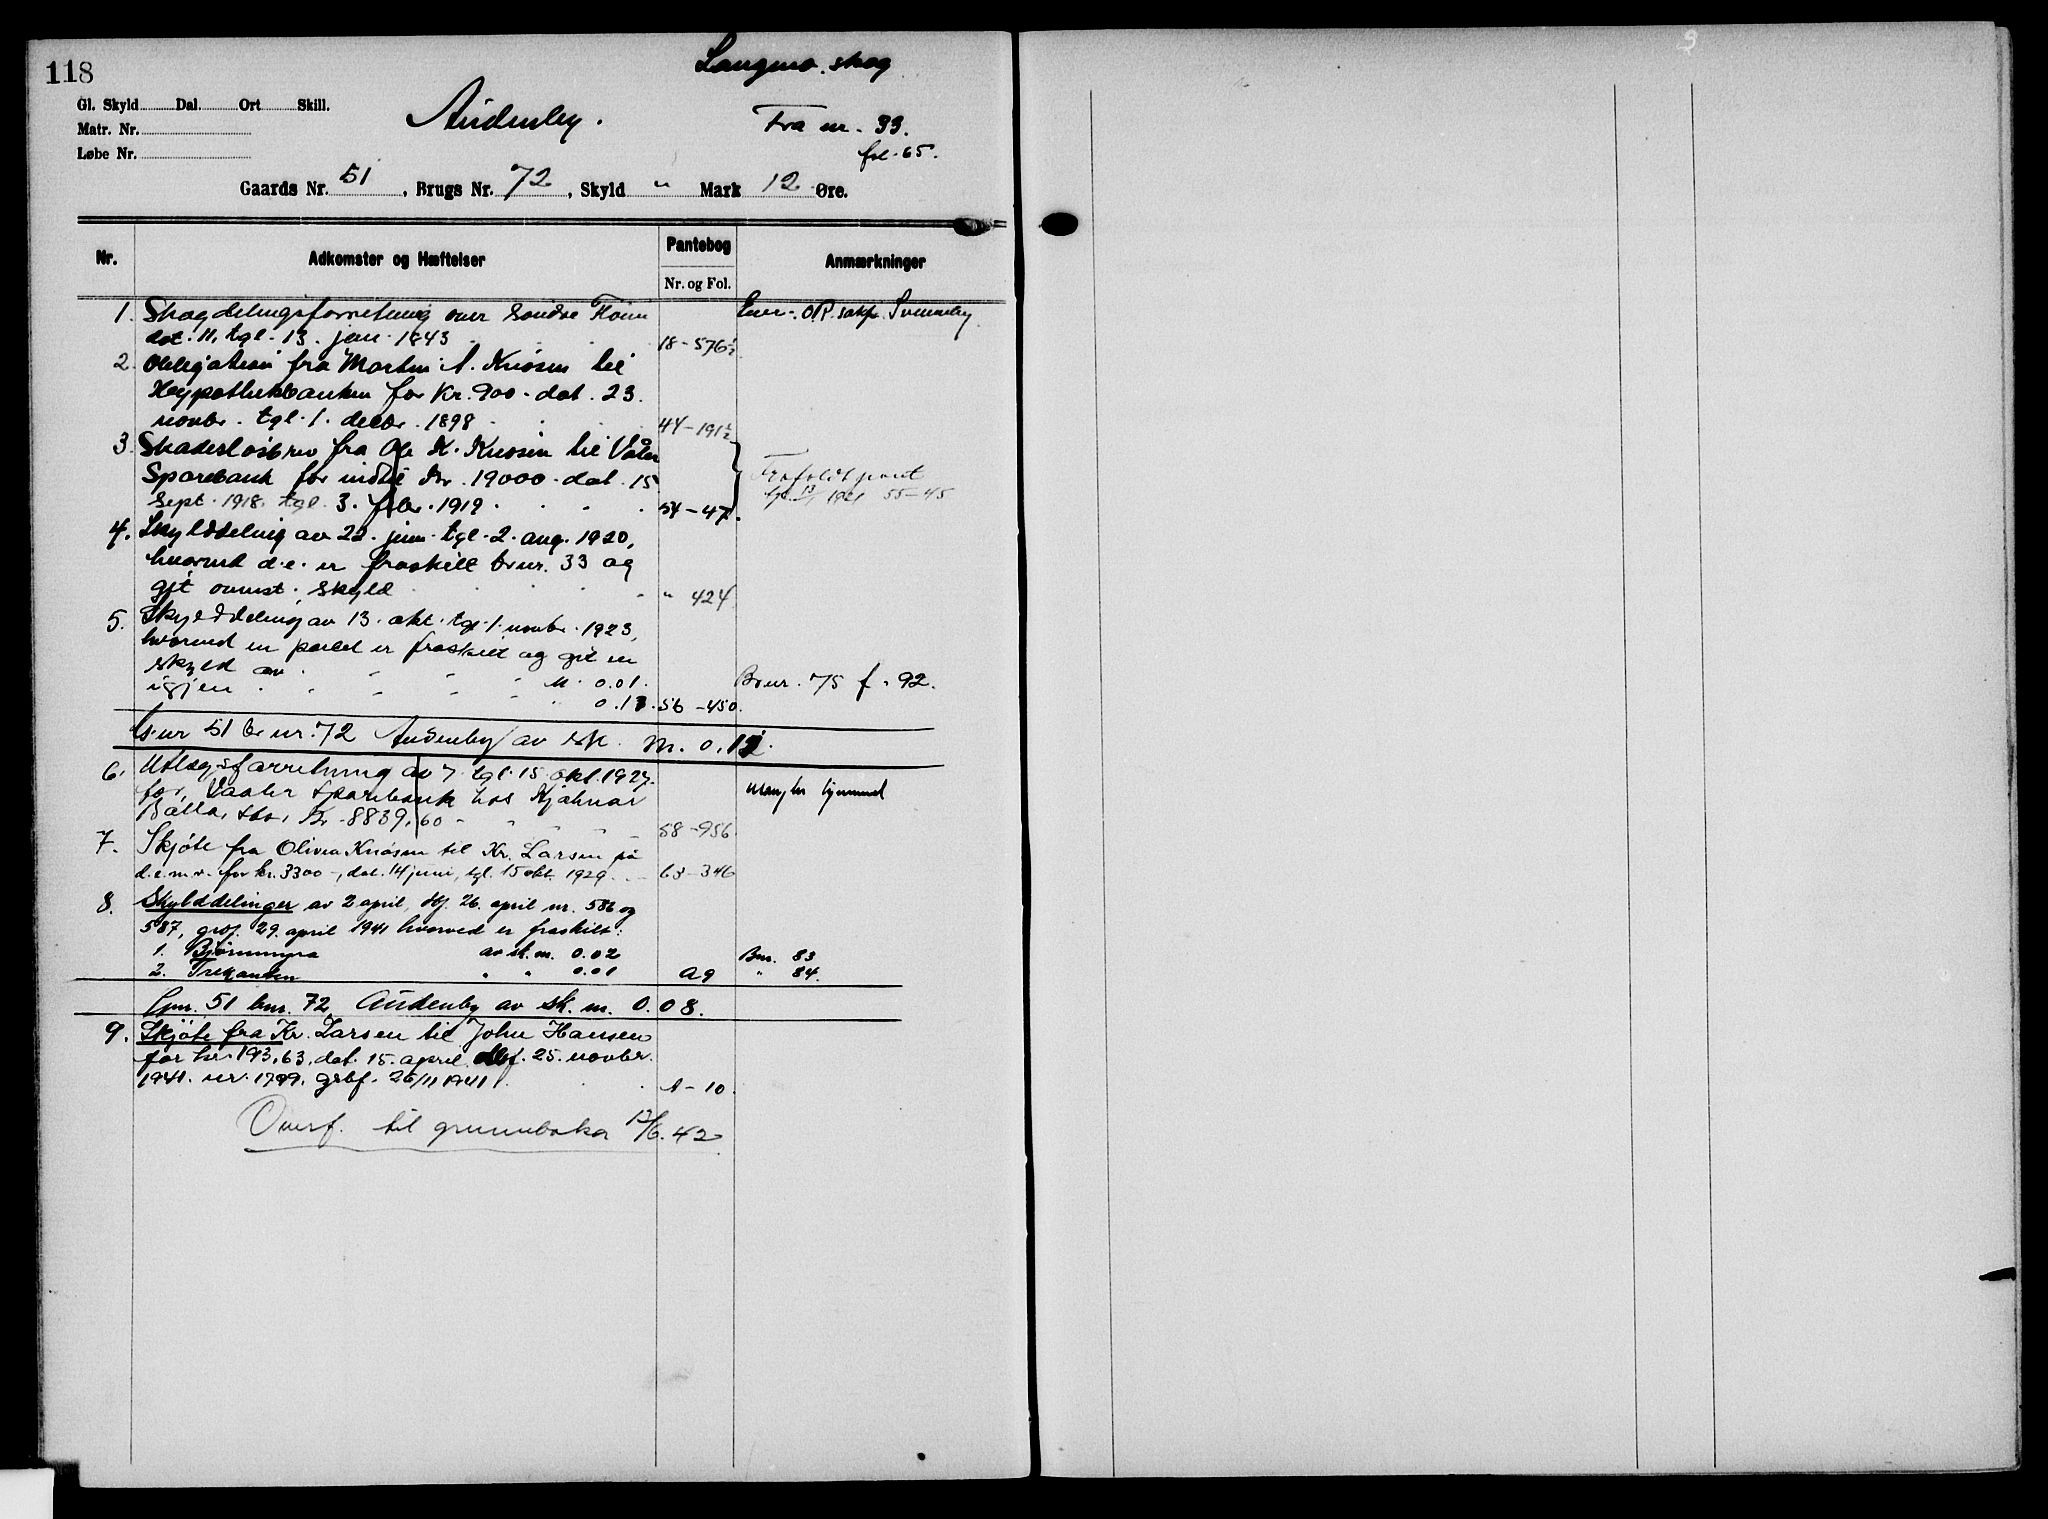 118
Langmo skog
Gl. Skyld Dal. Ort Skill.
Audenby.
Fra nr. 33.
Matr. Nr.
fol. 65.
Løbe Nr.
Gaards Nr. 51, Brugs Nr. 72, Skyld " Mark 12 Øre.
Nr. Adkomster og Hæftelser Pantebog Anmærkninger
Nr. og Fol.
1. Skogdelingsforretning over Søndre
dat. 11, tgl. 13. jan. 1843 18-576½
2. Obligation fra Martin A. Knøsen til
Hypothekbanken for Kr. 900 - dat. 23.
novbr. tgl. 1. decbr. 1898 44-191½
3. Skadesløsbrev fra Ole K. Knøsen til Våler
Sparebank for indtil Kr. 19000 - dat. 15
Sept. 1918. tgl. 3. febr. 1919. 54-47.
1921 55-45
4. Skylddeling av 22. juni tgl. 2. aug. 1920,
hvorved d.e. er fraskilt brnr. 33 og
git ovenst. skyld " 424
5. Skylddeling av 13. okt. tgl. 1. novbr. 1923,
hvorved en parcel er fraskilt og git en
skyld av M. 0.01. Brnr. 75 f. 92.
igjen " 0.11. 56-450.
Gnr 51 brnr. 72 Audenby av sk. m. 0.11.
6. Utlægsforretning av 7. tgl. 15. okt. 1927.
for Vaaler Sparebank hos Hjalmar
Kr. 8839,60 58-956
Mangler hjemmel
7. Skjøte fra Olivia Knøsen til Kr. Larsen på
d.e.m.v. for kr. 3300-, dat. 14 juni, tgl. 15 okt. 1929. 63-346
8. Skylddelinger av 2 april, dbf. 26. april nr. 586 og
587, grbf. 29. april 1941 hvorved er fraskilt:
1. Bjørnmyra av sk. m. 0.02 Bnr. 83
2. Trekanten " " 0.01 A 9 " 84.
Gnr. 51 bnr. 72, Audenby av sk. m. 0.08.
9. Skjøte fra Kr. Larsen til John Hansen
for kr. 193,63, dat. 15. april dbf. 25. novbr.
1941. nr. 1799. grbf. 26/11 1941. A-10.
Overf. til grunnboka 13/6. 42